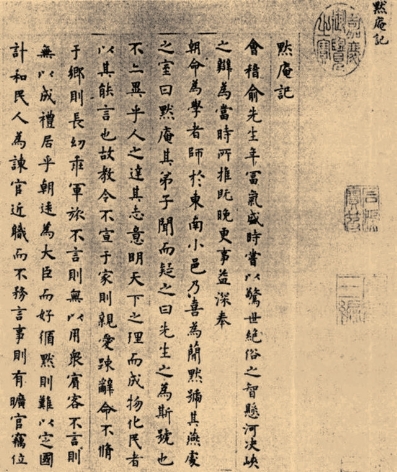 黙庵記
嘉慶御覽之寶
黙庵記
會稽俞先生年富氣盛時嘗以驚世絶俗之智懸河决峽
之辯為當時所推既晚更事益深奉
朝命為學者師於東南小邑乃喜為簡黙號其燕處
之室曰黙庵其弟子聞而疑之曰先生之為斯號也
不亦異乎人之達其志意明天下之理而成物化民者
以其能言也故教令不宣于家則親愛踈辭命不脩
于鄉則長幼乖軍旅不言則無以用衆賓客不言則
無以成禮居乎朝逹為大臣而好循黙則難以定國
計和民人為諫官近職而不務言事則有曠官竊位